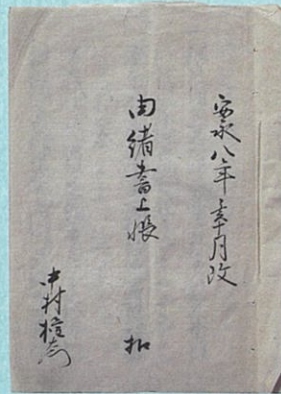 安永八年亥十月改
由緒書上帳
扣
中村権左衛門